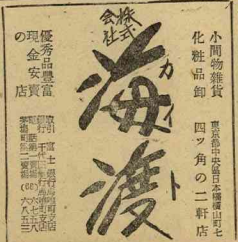 小間物雑貨
化粧品卸
東京都中央區日本橋横山町七
四ツ角の二軒店
株式
会社
海渡
カイト
優秀品豊富
現金安賣
の店
取引
銀行
富士銀行